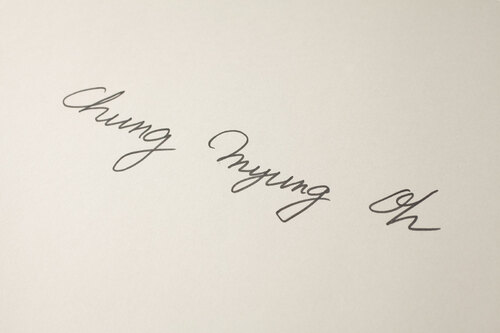 Chung Myung Oh